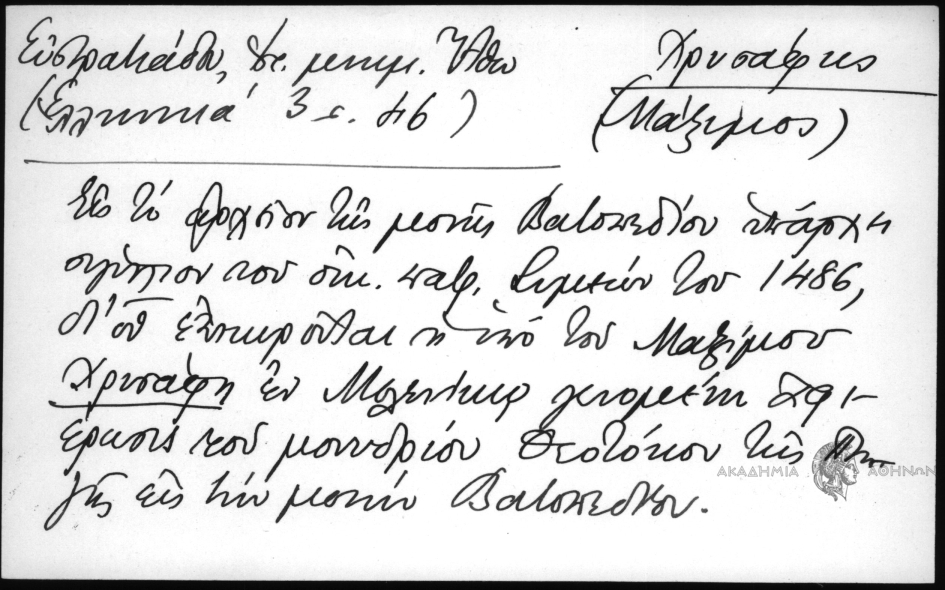 Εὐστρατιάδου, Ἱστ. μνημ. Ἄθω
(Ἑλληνικά 3 σ. 46)
Χρυσάφης
(Μάξιμος)
Εἰς τὸ ἀρχεῖον τῆς μονῆς Βατοπεδίου ὑπάρχει
σιγίλλιον τοῦ οἰκ. πατρ. Συμεών τοῦ 1486,
δι' οὗ ἐπικυροῦται ἡ ὑπὸ τοῦ Μαξίμου
Χρυσάφη ἐν Μελενίκῳ γενομένη ἀφι-
έρωσις τοῦ μονυδρίου Θεοτόκου τῆς Πη-
γῆς εἰς τὴν μονὴν Βατοπεδίου.
ΑΚΑΔΗΜΙΑ ΑΘΗΝΩΝ